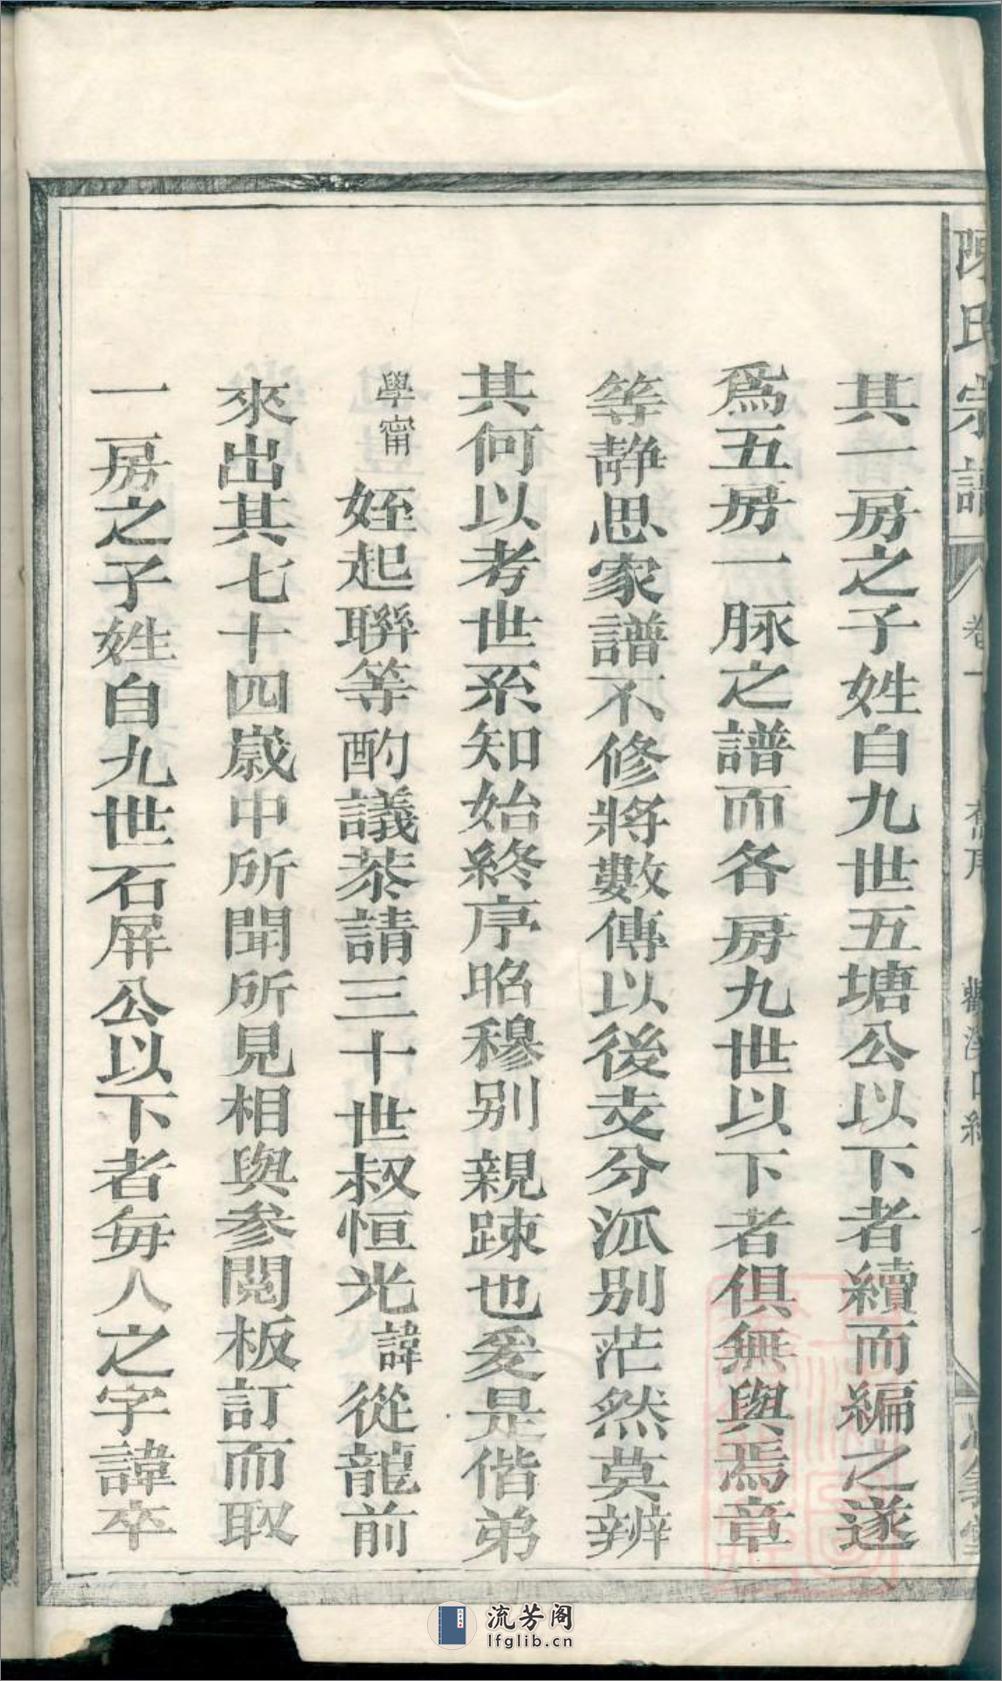 陳氏宗譜
其一房之子姓自九世五塘公以下者續而編之遂
為五房一脉之譜而各房九世以下者俱無與焉章
等靜思家譜不修將數傳以後支分派別茫然莫辨
其何以考世系知始終序昭穆別親踈也爰是偕弟
學甯姪起聯等酌議恭請三十世叔恒光諱從龍前
來出其七十四歲中所聞所見相與參閱板訂而取
一房之子姓自九世石屏公以下者每人之字諱卒
流芳阁
lfglib.cn